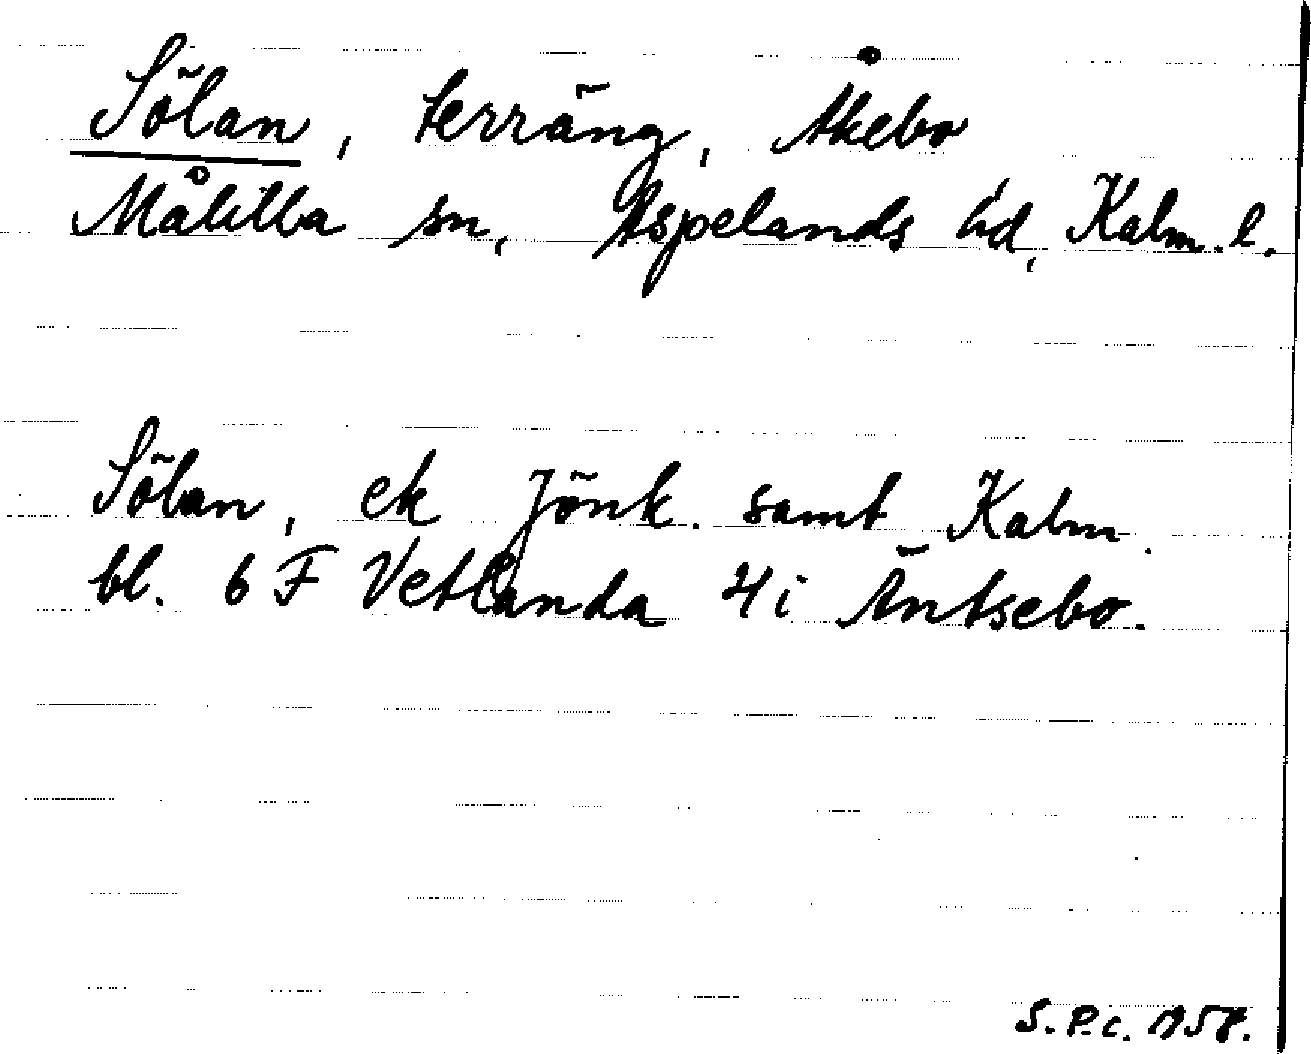 Sölan, terräng, Åkebo
Målilla sn, Aspelands hd, Kalm. l.
Sölan, ek Jönk. samt Kalm.
bl. 6 F Vetlanda 4i Äntsebo.
S.P.c.